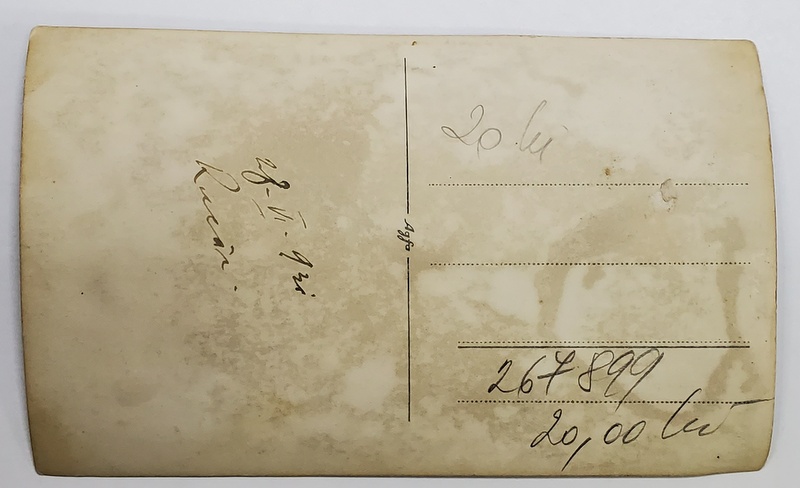 28-VI. 931
Agfa
20 lei
267899
20,00 lei